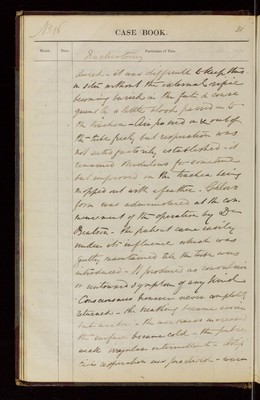 No 16
31
CASE BOOK.
Month
Date
Particulars of Case
Tracheotomy
it was difficult to keep this
in situ without the external orifice
becoming buried in the fat & conse
quently a little blood passed in to
the trachea - Air passed in & out of
the tube freely but respiration was
not satisfactorily established - it
remained for sometime
but improved on the trachea being
mopped out with a feather - Chloro
form was administered at the com
mencement of the operation by Dr
Beatson - The patient came easily
under its influence which was
gently maintained till the tube was
introduced - It produced no convulsion
or untoward symptom of any kind
Consciousness however never completely
returned - the breathing became
but weaker - the
the surface became cold - the pulse
weak irregular intermittent -
respiration was practised - warm